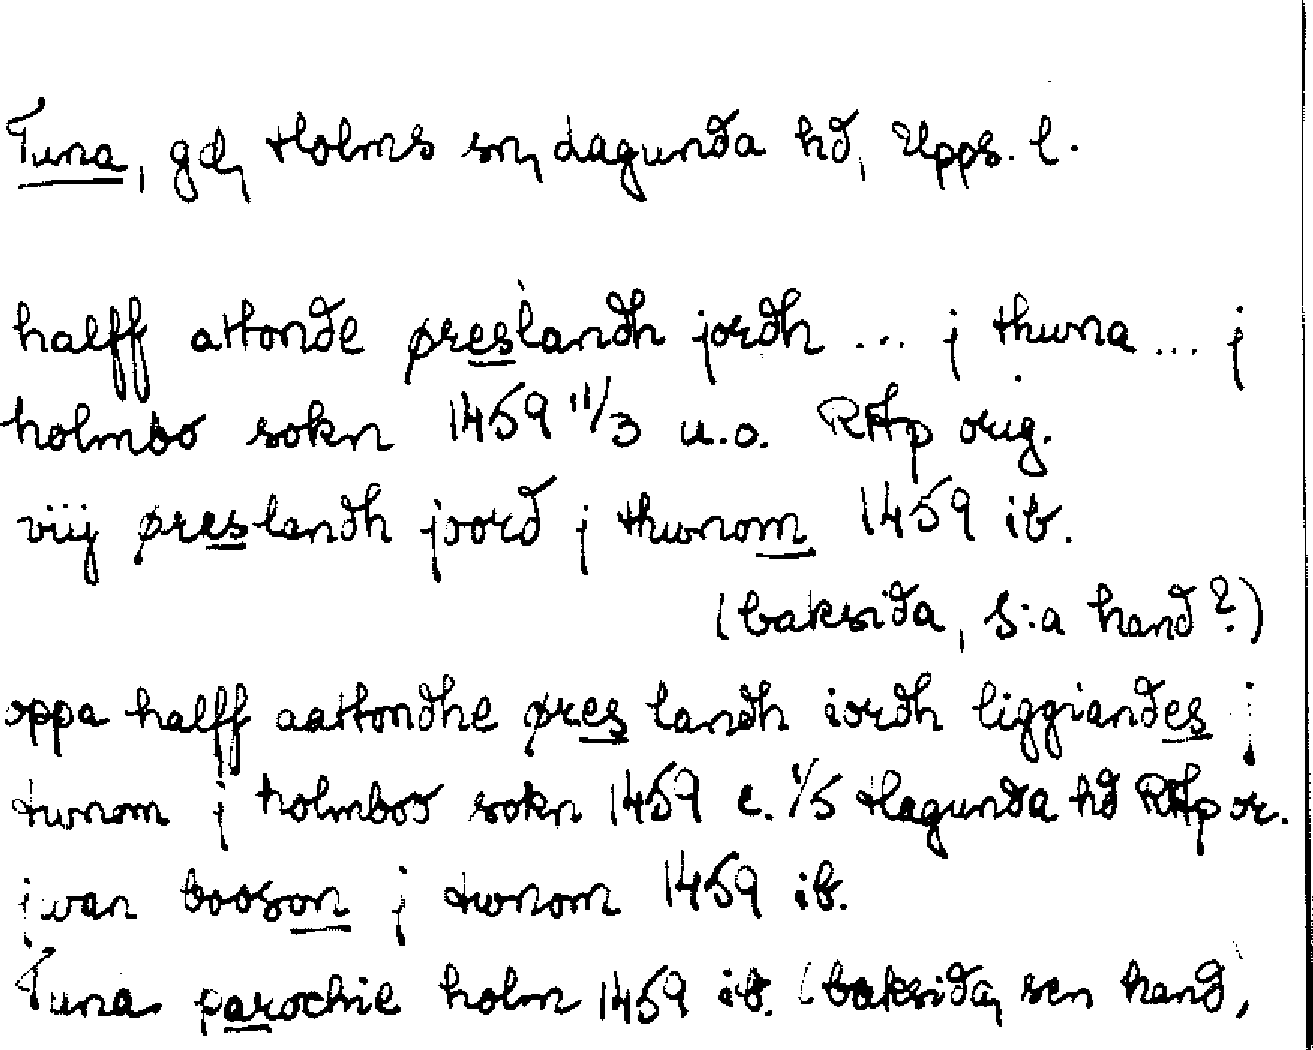 Tuna, gd, Holms sn, Lagunda hd, Upps. l.
halff attonde øreslandh jordh ... j thwna ... j
holmbo sokn 1459 11/3 u.o. RAp orig.
viij øreslandh joord j thwnom 1459 ib.
(baksida, s:a hand?)
oppa halff aattondhe øres landh iordh liggiandes j
twnom j holmboo sokn 1459 e. 1/5 Hagunda hd RAp or.
jwan booson j twnom 1459 ib.
Tuna parochie holm 1459 ib. (baksida, sen hand,